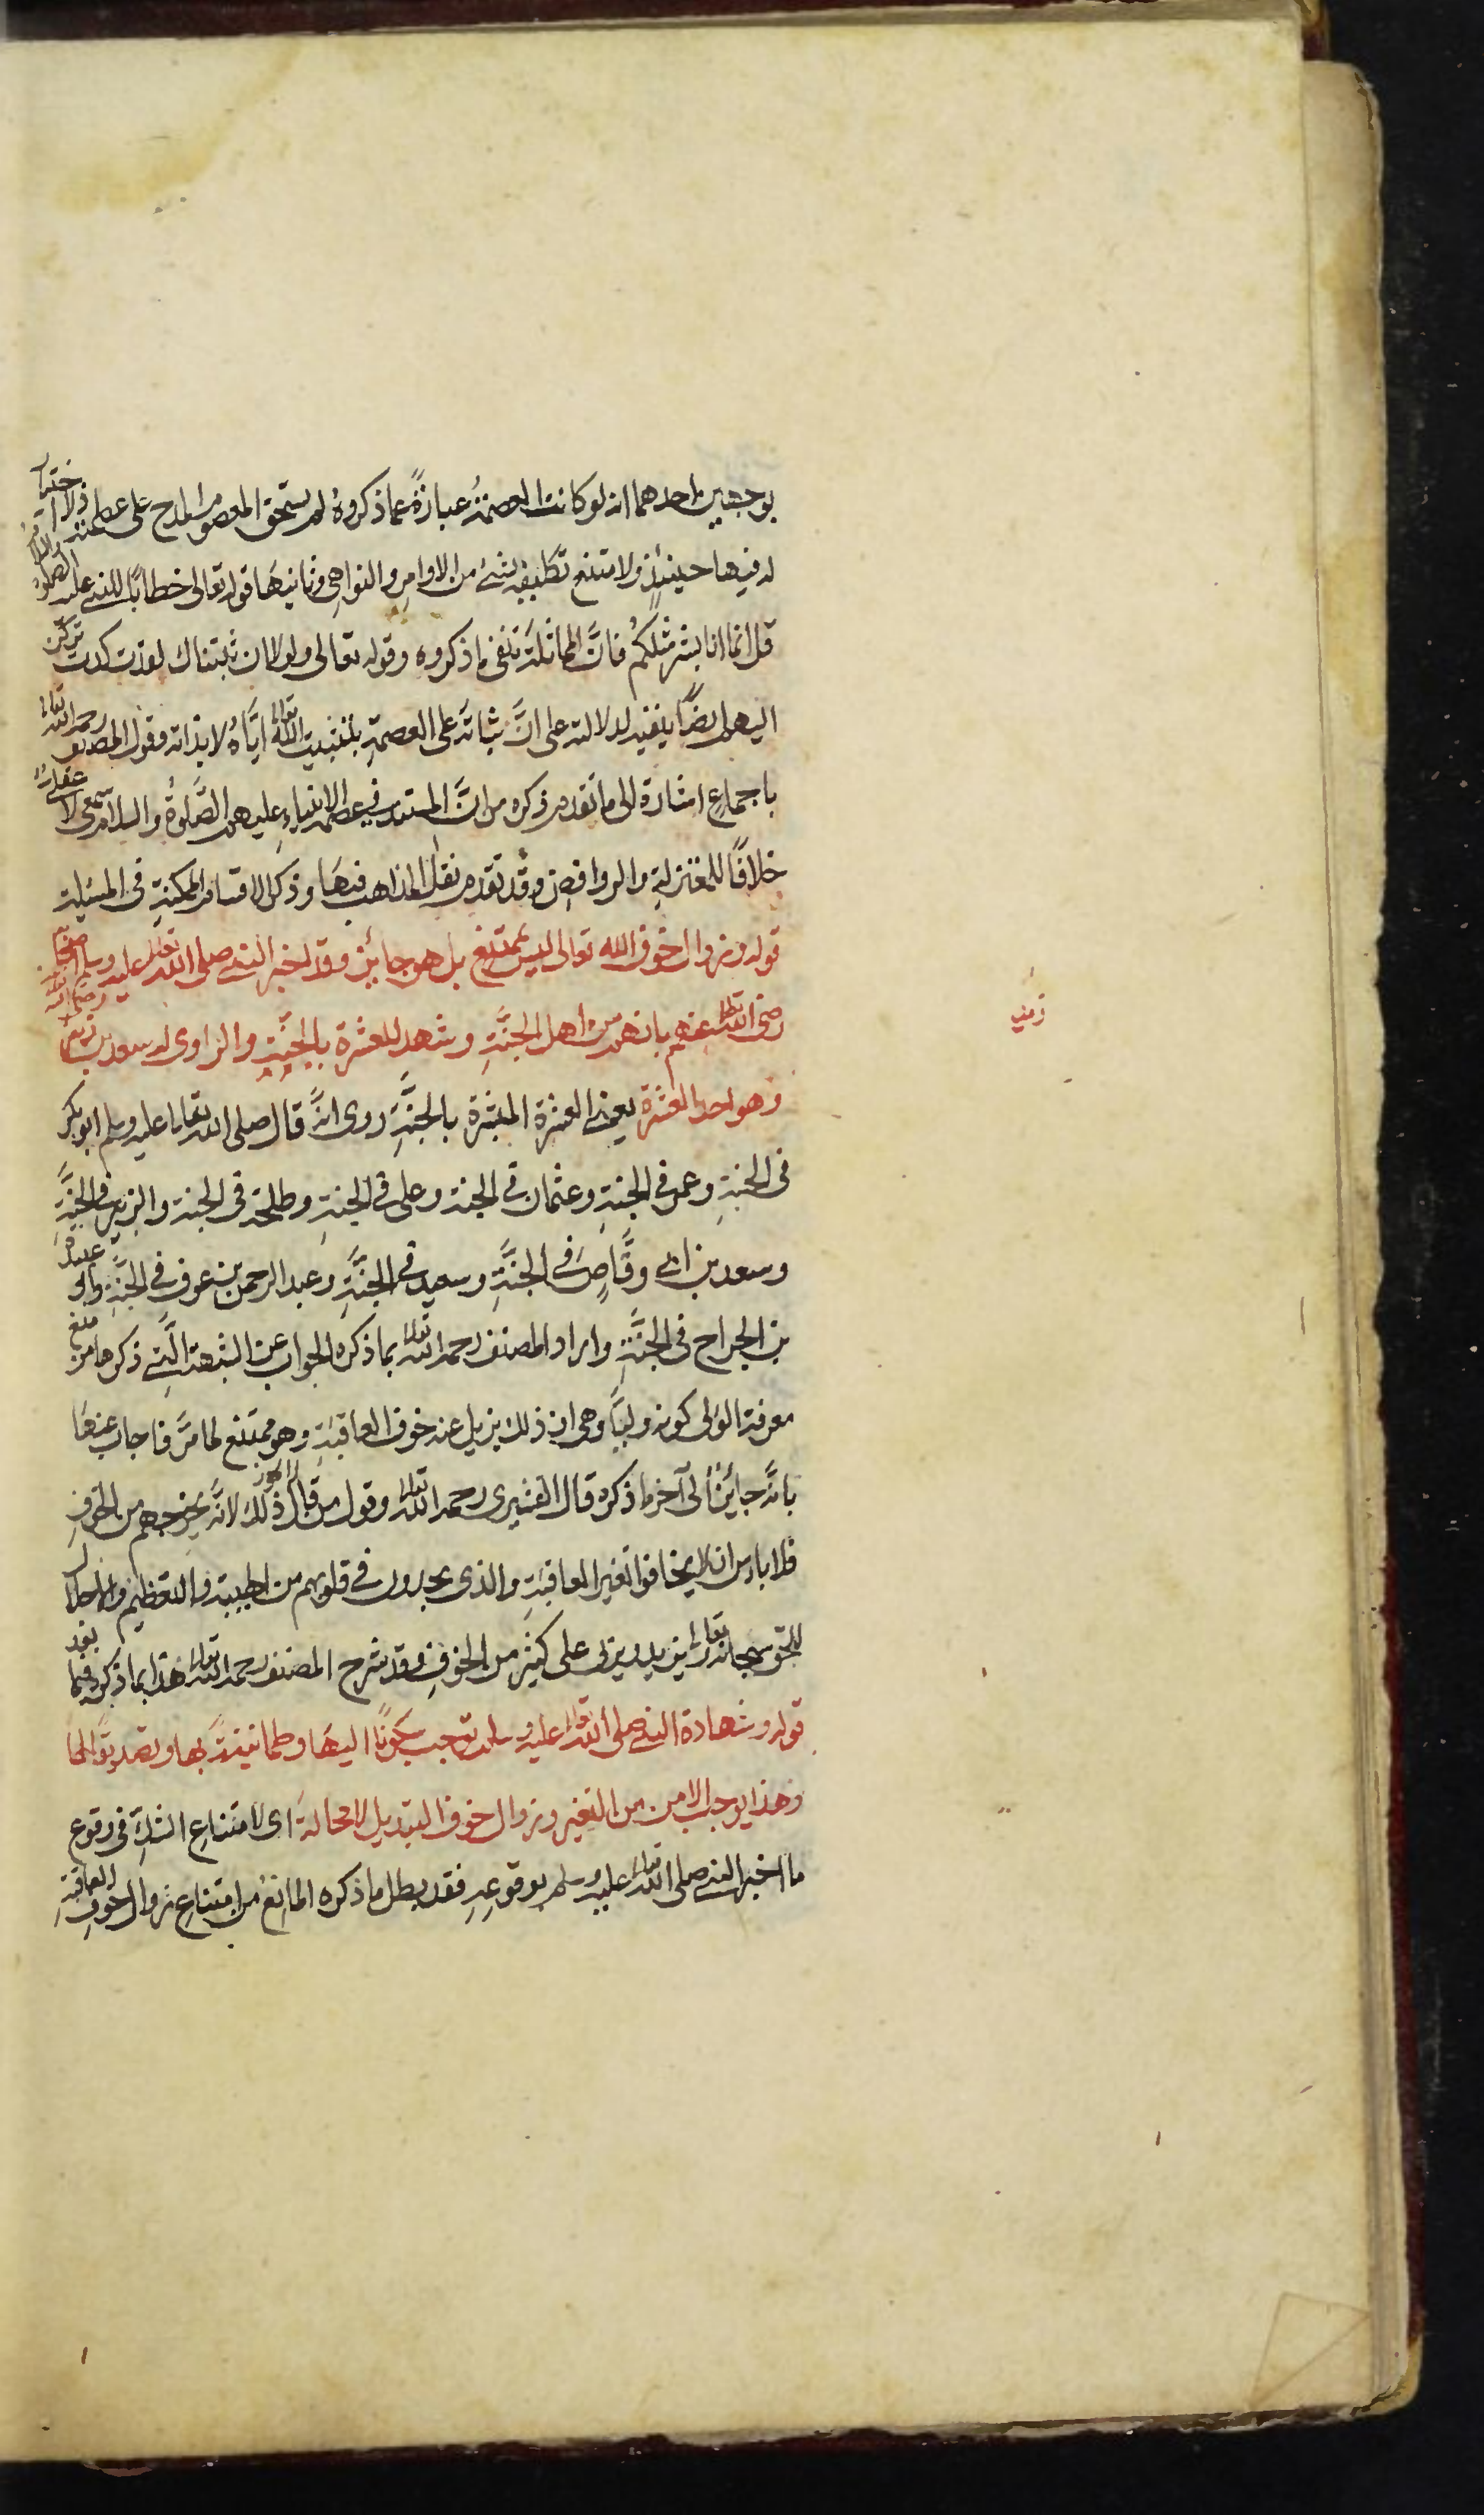 بوجهين احدهما انه لو كانت العصمة عبارة عما ذكروه لم يستحق المعصوم المدح على عصمته اذ لا اختيار
له فيها حينئذ ولامتنع تكليفه بشئ من الاوامر والنواهى وثانيها قوله تعالى خطابا للنبى عليه الصلوة والسلام
قل انما انا بشر مثلكم فان المماثلة تنفى ما ذكروه وقوله تعالى ولولا ان ثبتناك لقد كدت تركن
اليهم ايضا ينفيه لدلالته على ان ثباته على العصمة بتثبيت الله تعالى اياه لا بذاته وقول المصنف رحمه الله تعالى
باجماع اشارة الى ما تقدم ذكره من ان المستند فى عصمة الانبياء عليهم الصلوة والسلام سمعى لا عقلى
خلافا للمعتزلة والروافض وقد تقدم نقل المذاهب فيها وذكر الاقسام الممكنة فى المسئلة
قوله وزوال خوف الله تعالى ليس بممتنع بل هو جائز وقد اخبر النبى صلى الله تعالى عليه وسلم اصحابه
رضى الله تعالى عنهم بانهم من اهل الجنة وشهد للعشرة بالجنة والراوى له سعيد بن زيد رضى الله تعالى عنه
وهو احد العشرة يعنى العشرة المبشرة بالجنة روى انه قال صلى الله تعالى عليه وسلم ابو بكر
فى الجنة وعمر فى الجنة وعثمان فى الجنة وعلى فى الجنة وطلحة فى الجنة والزبير فى الجنة
وسعد بن ابى وقاص فى الجنة وسعيد فى الجنة وعبد الرحمن بن عوف فى الجنة وابو عبيدة
بن الجراح فى الجنة واراد المصنف رحمه الله تعالى بما ذكره الجواب عن الشبهة التى ذكرها من منع
معرفة الولى كونه وليا وهى ان ذلك يزيل عنه خوف العاقبة وهو ممتنع لما مر فاجاب عنها
بانه جائز الى آخر ما ذكره قال القشيرى رحمه الله تعالى وقول من قال لا يجوز ذلك لانه يخرجهم من الخوف
فلا باس ان لا يخافوا تغير العاقبة والذى يجدون فى قلوبهم من الهيبة والتعظيم والاجلال
للحق سبحانه وتعالى يزيد ويربى على كثير من الخوف وقد شرح المصنف رحمه الله تعالى هذا بما ذكره فيما بعد
قوله وشهادة النبى صلى الله تعالى عليه وسلم توجب سكونا اليها وطمانينة بها وتصديقا لها
وهذا يوجب الامن من التغير وزوال خوف التبديل لا محالة اى لامتناع الشك فى وقوع
ما اخبر النبى صلى الله تعالى عليه وسلم بوقوعه فقد بطل ما ذكره المانع من امتناع زوال خوف العاقبة